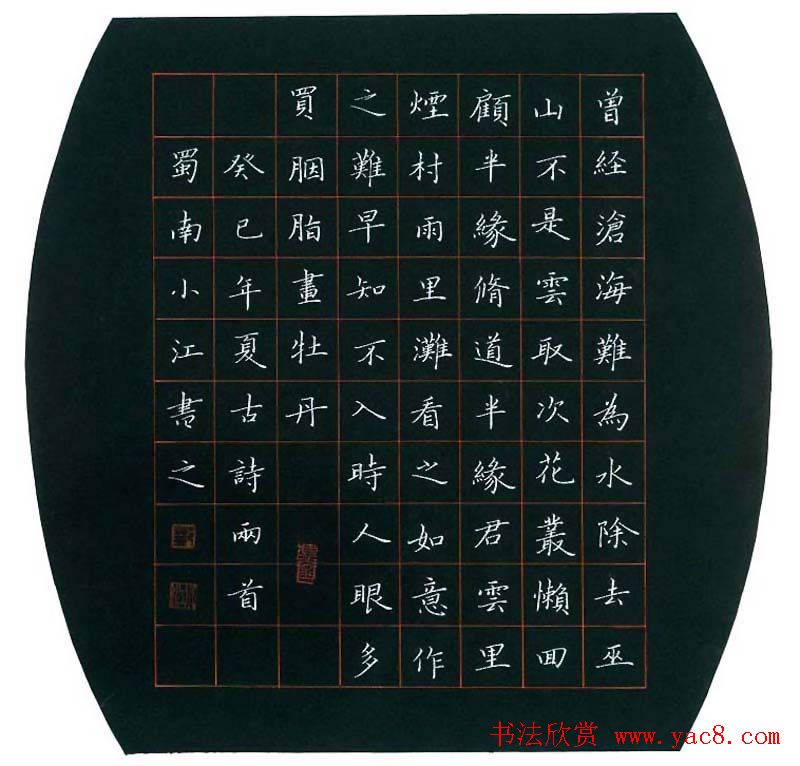 曾経滄海難為水除去巫
山不是雲取次花叢懶回
顧半緣脩道半緣君雲里
煙村雨里灘看之如意作
之難早知不入時人眼多
買胭脂畫牡丹
癸已年夏古詩兩首
蜀南小江書之
书法欣赏 www.yac8.com